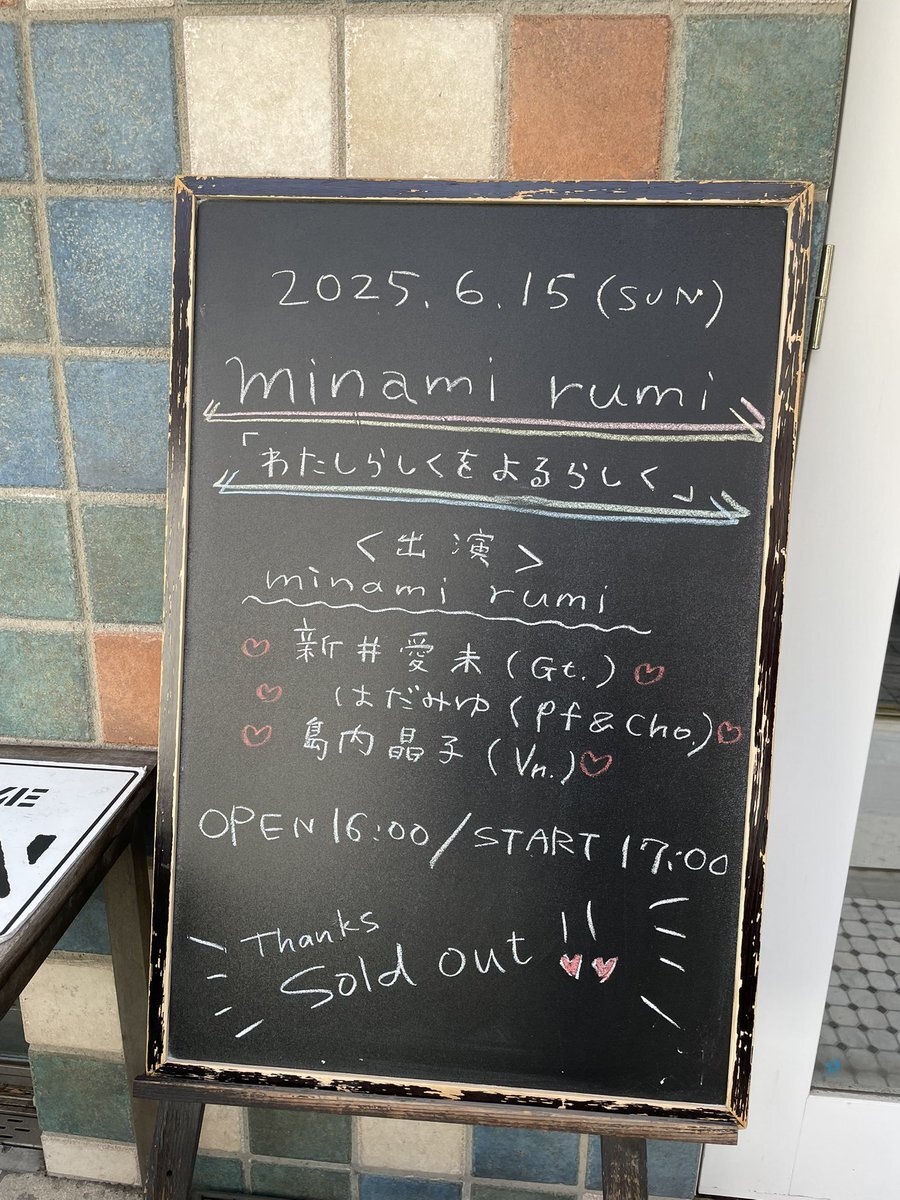 2025.6.15(SUN)
minami rumi
「わたしらしくをよるらしく」
<出演>
minami rumi
♡ 新井愛未(Gt.)♡
♡ はだみゆ(Pf&Cho.)♡
♡ 島内晶子(Vn.)♡
OPEN 16:00/START 17:00
Thanks
Sold out!!